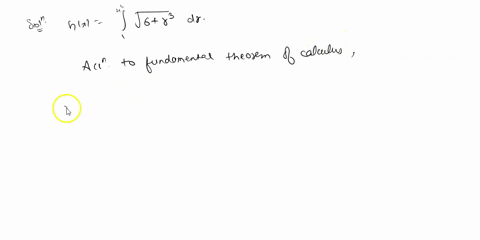 Solⁿ. h(x) = ∫₁ √6+r³ dr.
Accⁿ. to fundamental theorem of calculus,